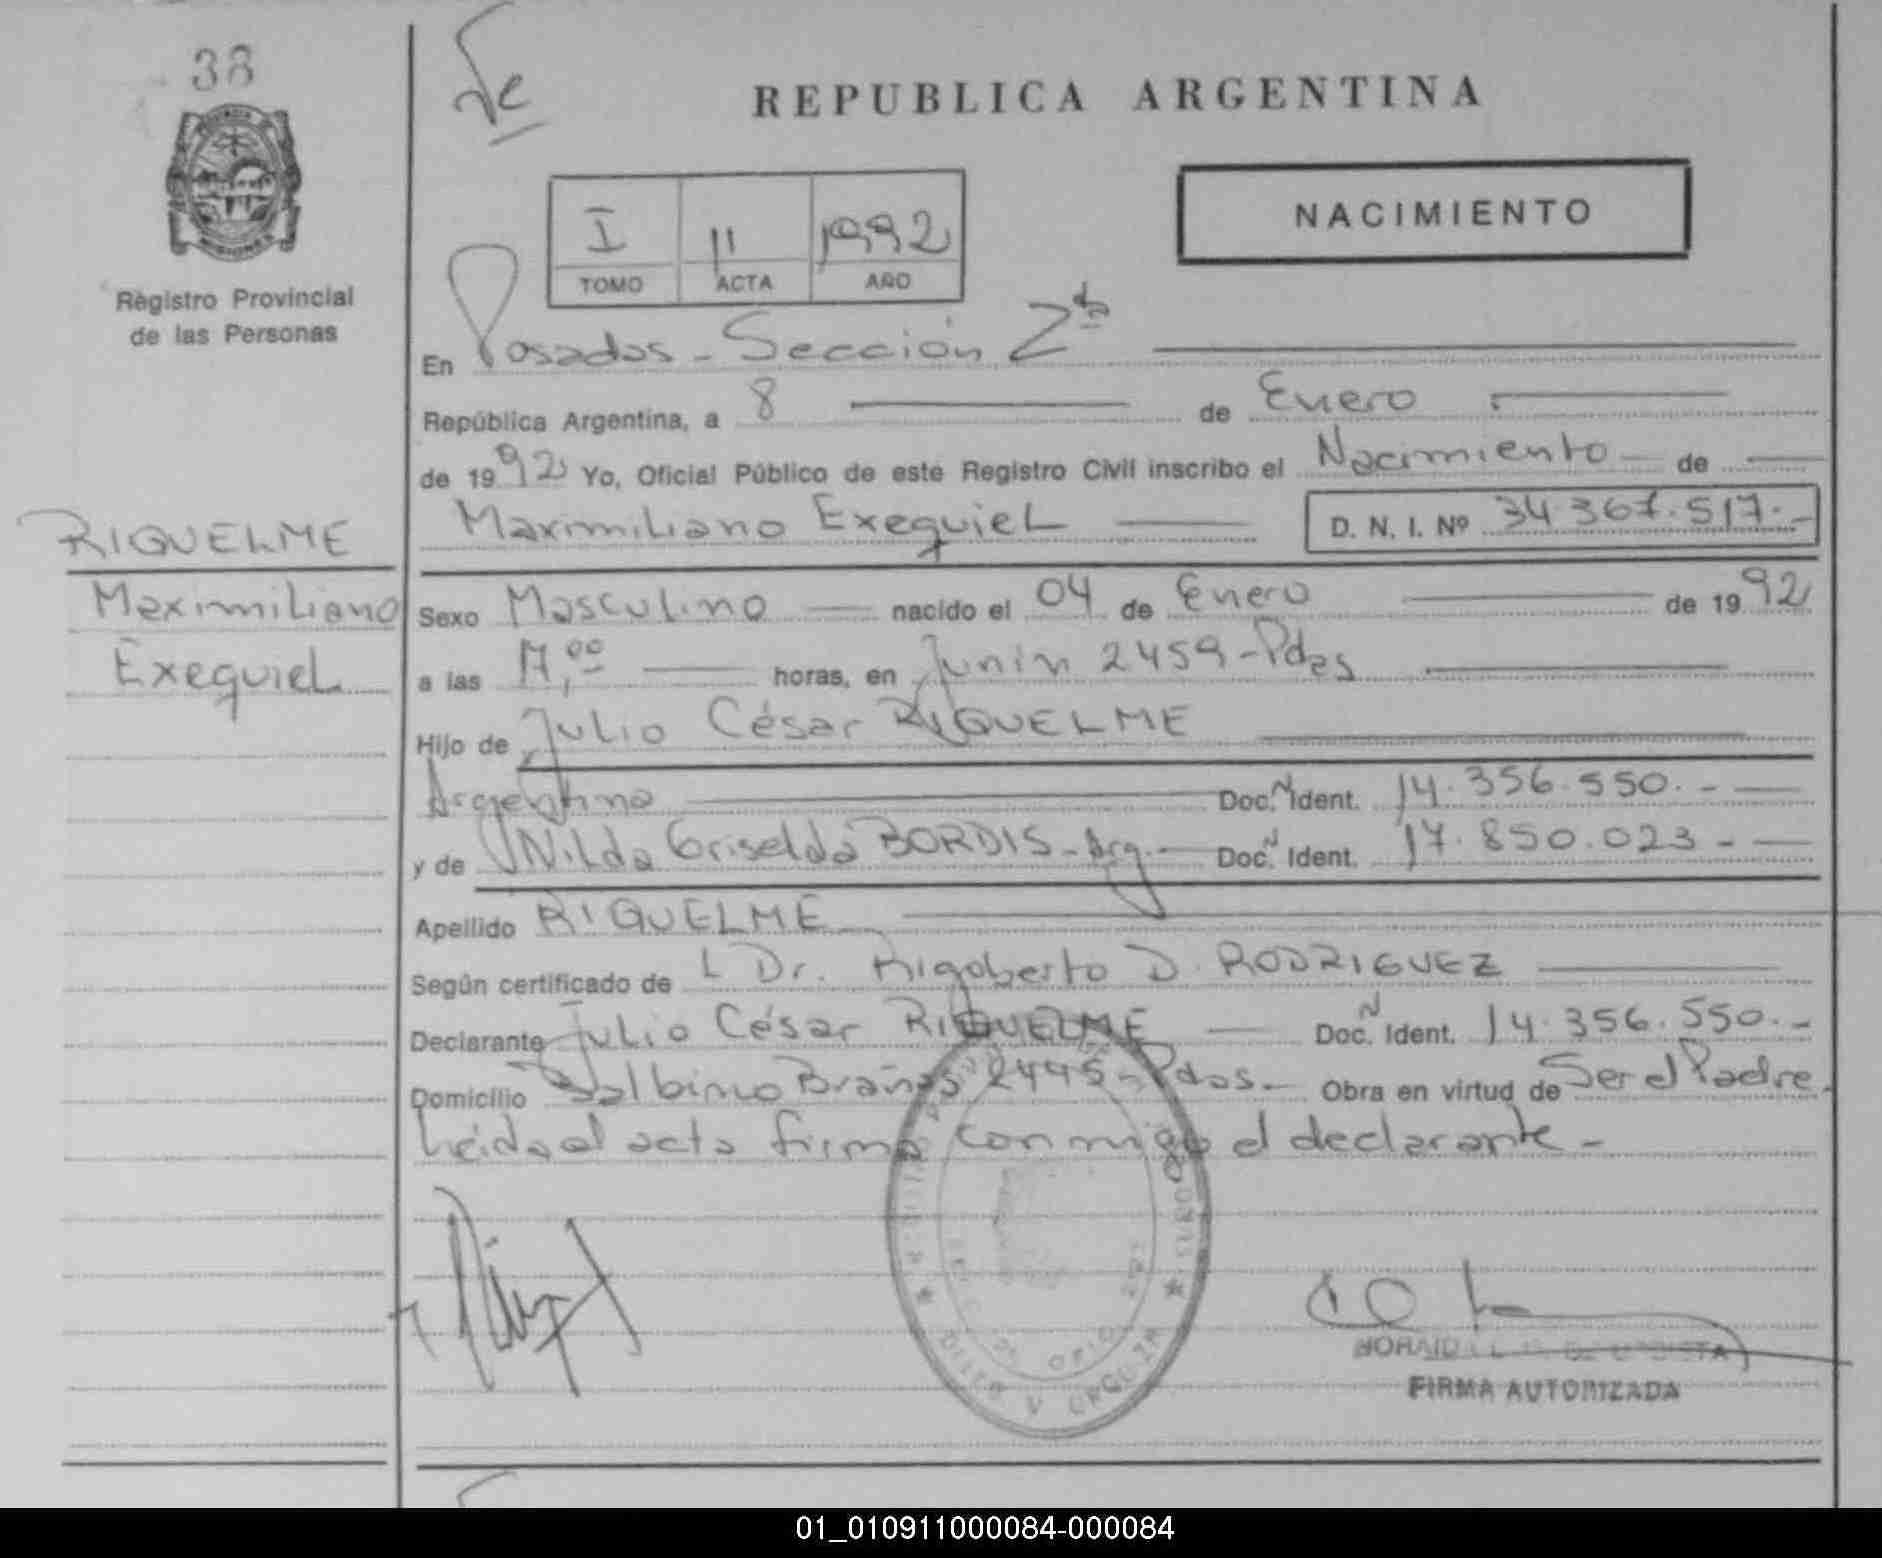 38
REPUBLICA ARGENTINA
NACIMIENTO
I 11 1992
TOMO ACTA AÑO
Registro Provincial
de las Personas
En Posadas - Sección 2da
República Argentina, a 8 de Enero
de 1992 Yo, Oficial Público de este Registro Civil inscribo el Nacimiento de
Maximiliano Exequiel D. N. I. Nº 34.367.517.-
RIQUELME
Maximiliano
Exequiel
Sexo Masculino nacido el 04 de Enero de 1992
a las 17,00 horas, en Junín 2459 - Pdas
Hijo de Julio César RIQUELME
Argentino Doc. N Ident. 14.356.550.-
y de Nilda Griselda BORDIS - Arg.- Doc. N Ident. 17.850.023-
Apellido RIQUELME
Según certificado de L Dr. Rigoberto D. RODRIGUEZ
Declarante Julio César RIQUELME Doc. N Ident. 14.356.550.-
Domicilio Balbino Brañas 2445 - Pdas.- Obra en virtud de Ser el Padre.
Leída el acta firma conmigo el declarante -
FIRMA AUTORIZADA
01_010911000084-000084